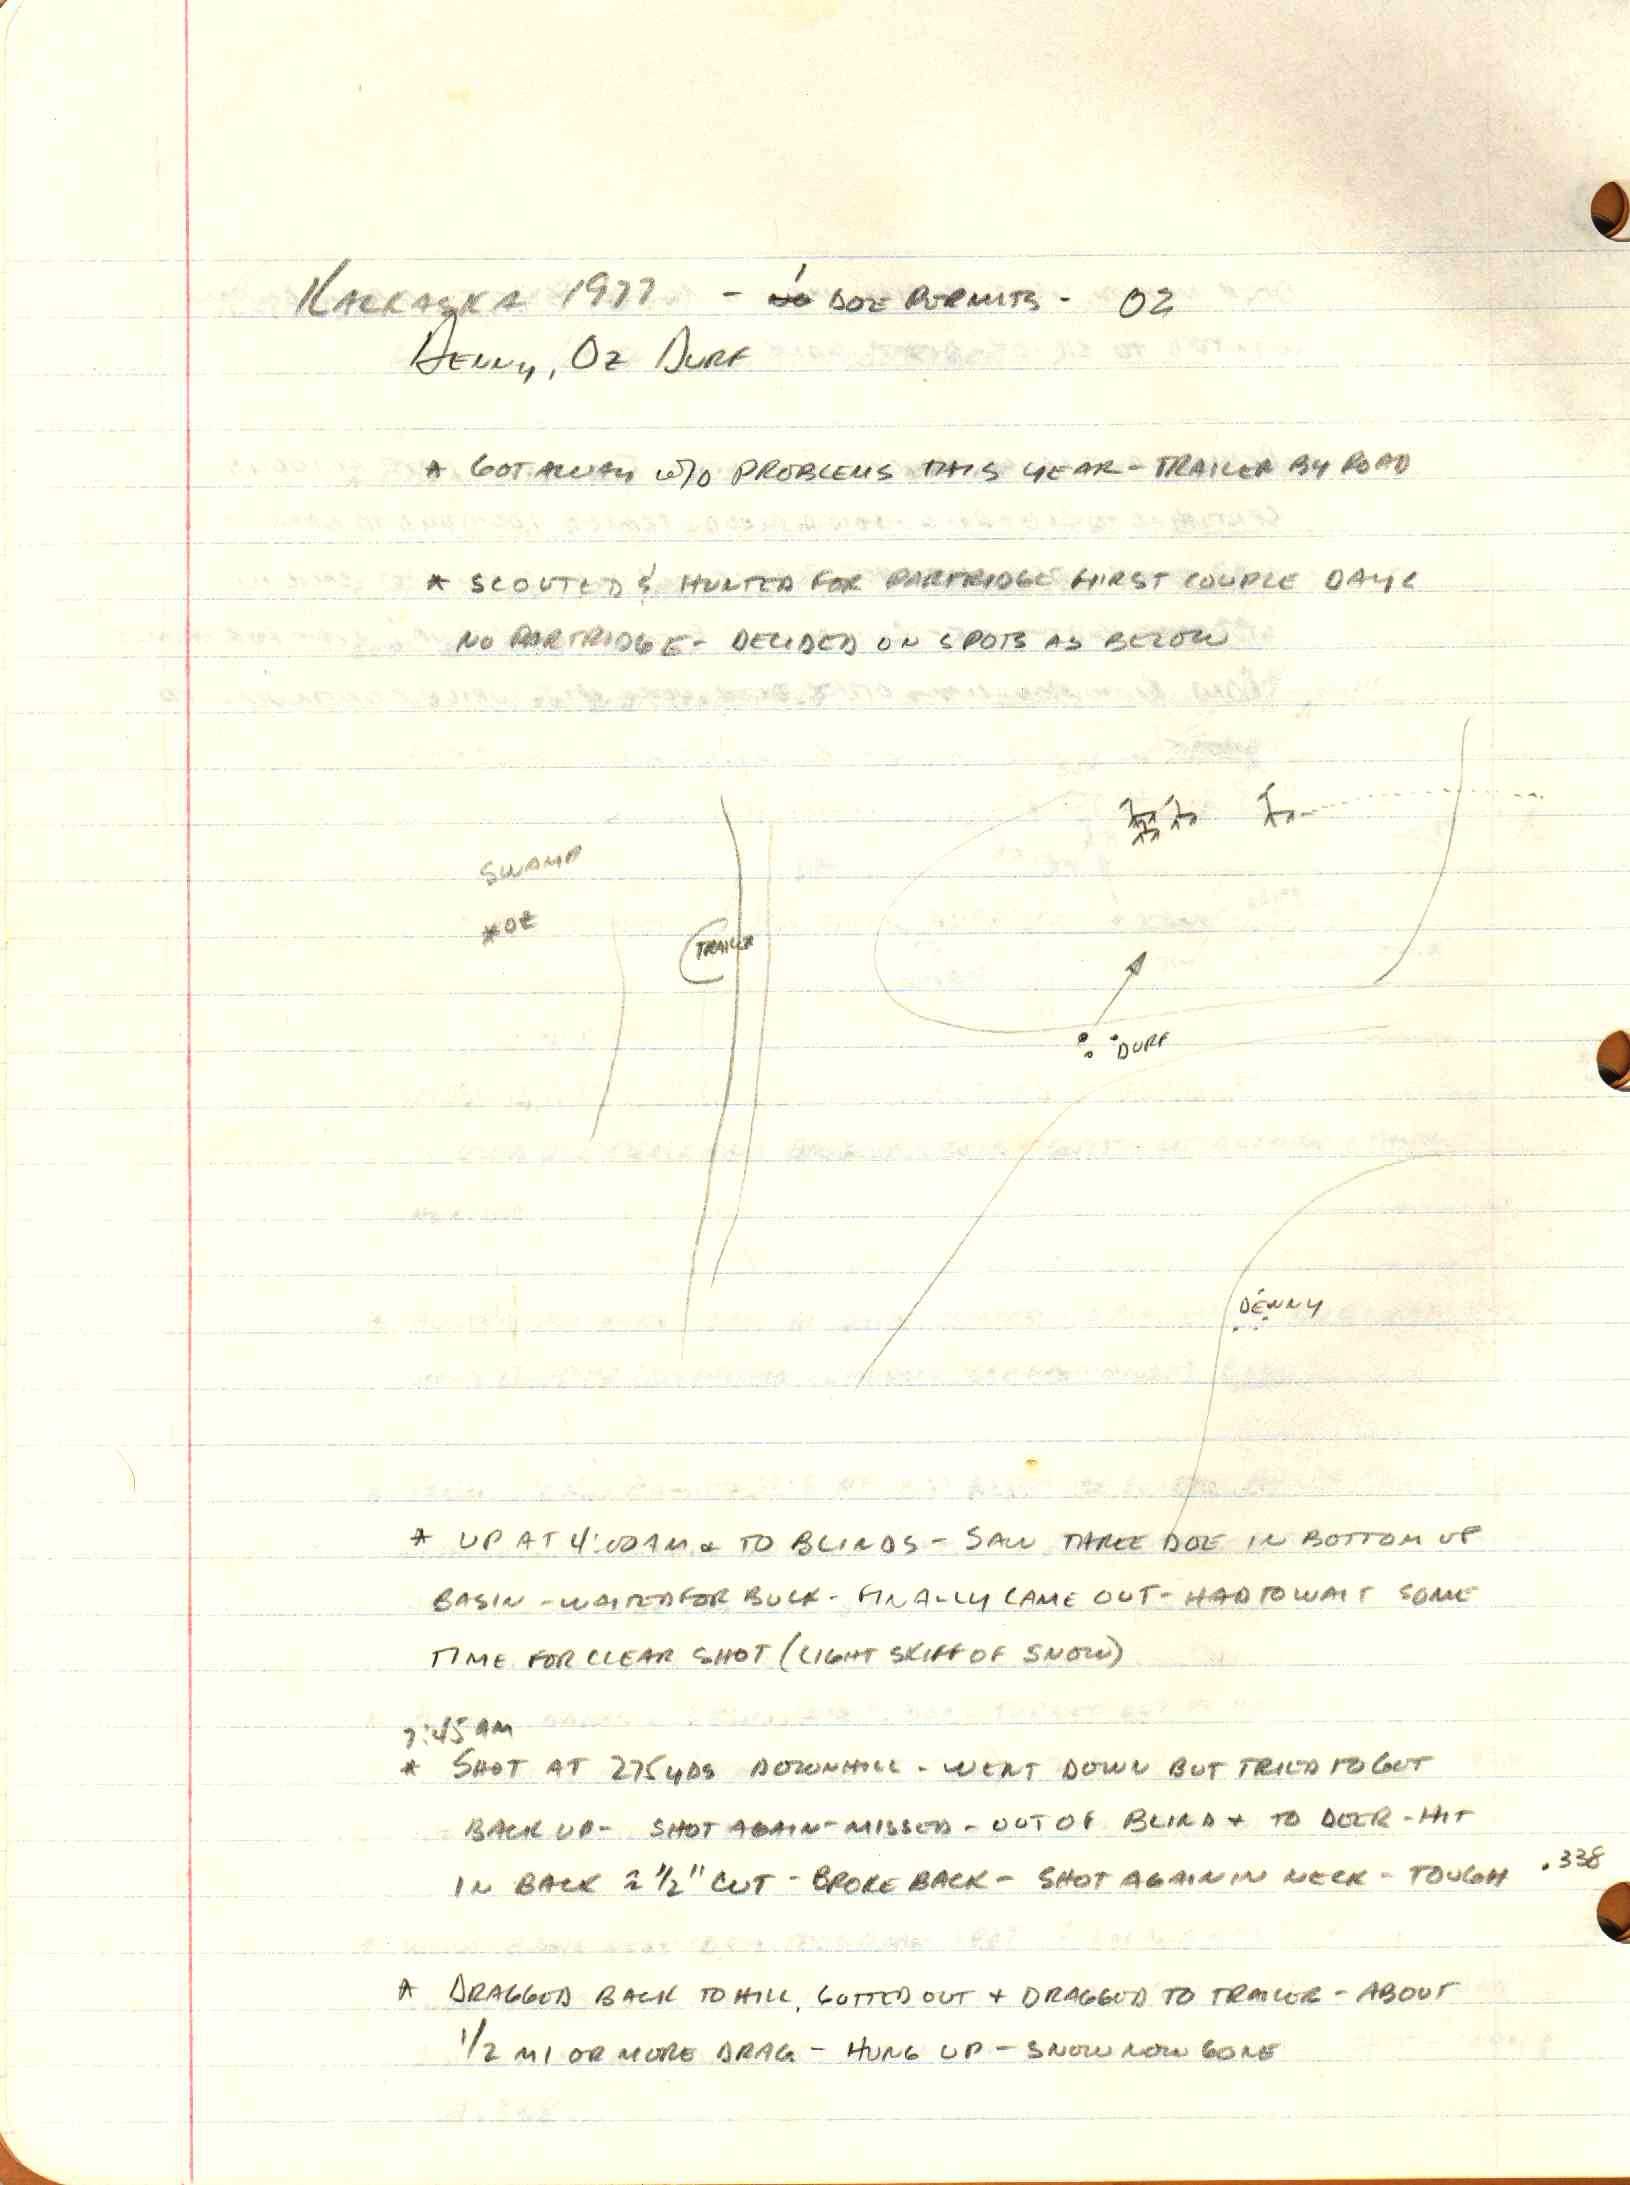 KALKASKA 1977 - 1 DOE PERMITS - OZ
DENNY, OZ DURF
* GOT AWAY W/O PROBLEMS THIS YEAR - TRAILER BY ROAD
* SCOUTED & HUNTED FOR PARTRIDGE FIRST COUPLE DAYS
NO PARTRIDGE - DECIDED ON SPOTS AS BELOW
SWAMP
* OZ
TRAILER
DURF
DENNY
* UP AT 4:00 AM & TO BLINDS - SAW THREE DOE IN BOTTOM OF
BASIN - WAITED FOR BUCK - FINALLY CAME OUT - HAD TO WAIT SOME
TIME FOR CLEAR SHOT (LIGHT SKIFF OF SNOW)
7:45 AM
* SHOT AT 275 YDS DOWNHILL - WENT DOWN BUT TRIED TO GET
BACK UP - SHOT AGAIN - MISSED - OUT OF BLIND + TO DEER - HIT
IN BACK ≈ 1/2" CUT - BROKE BACK - SHOT AGAIN IN NECK - TOUGH .338
* DRAGGED BACK TO HILL, GUTTED OUT + DRAGGED TO TRAILER - ABOUT
1/2 MI OR MORE DRAG - HUNG UP - SNOW NOW GONE